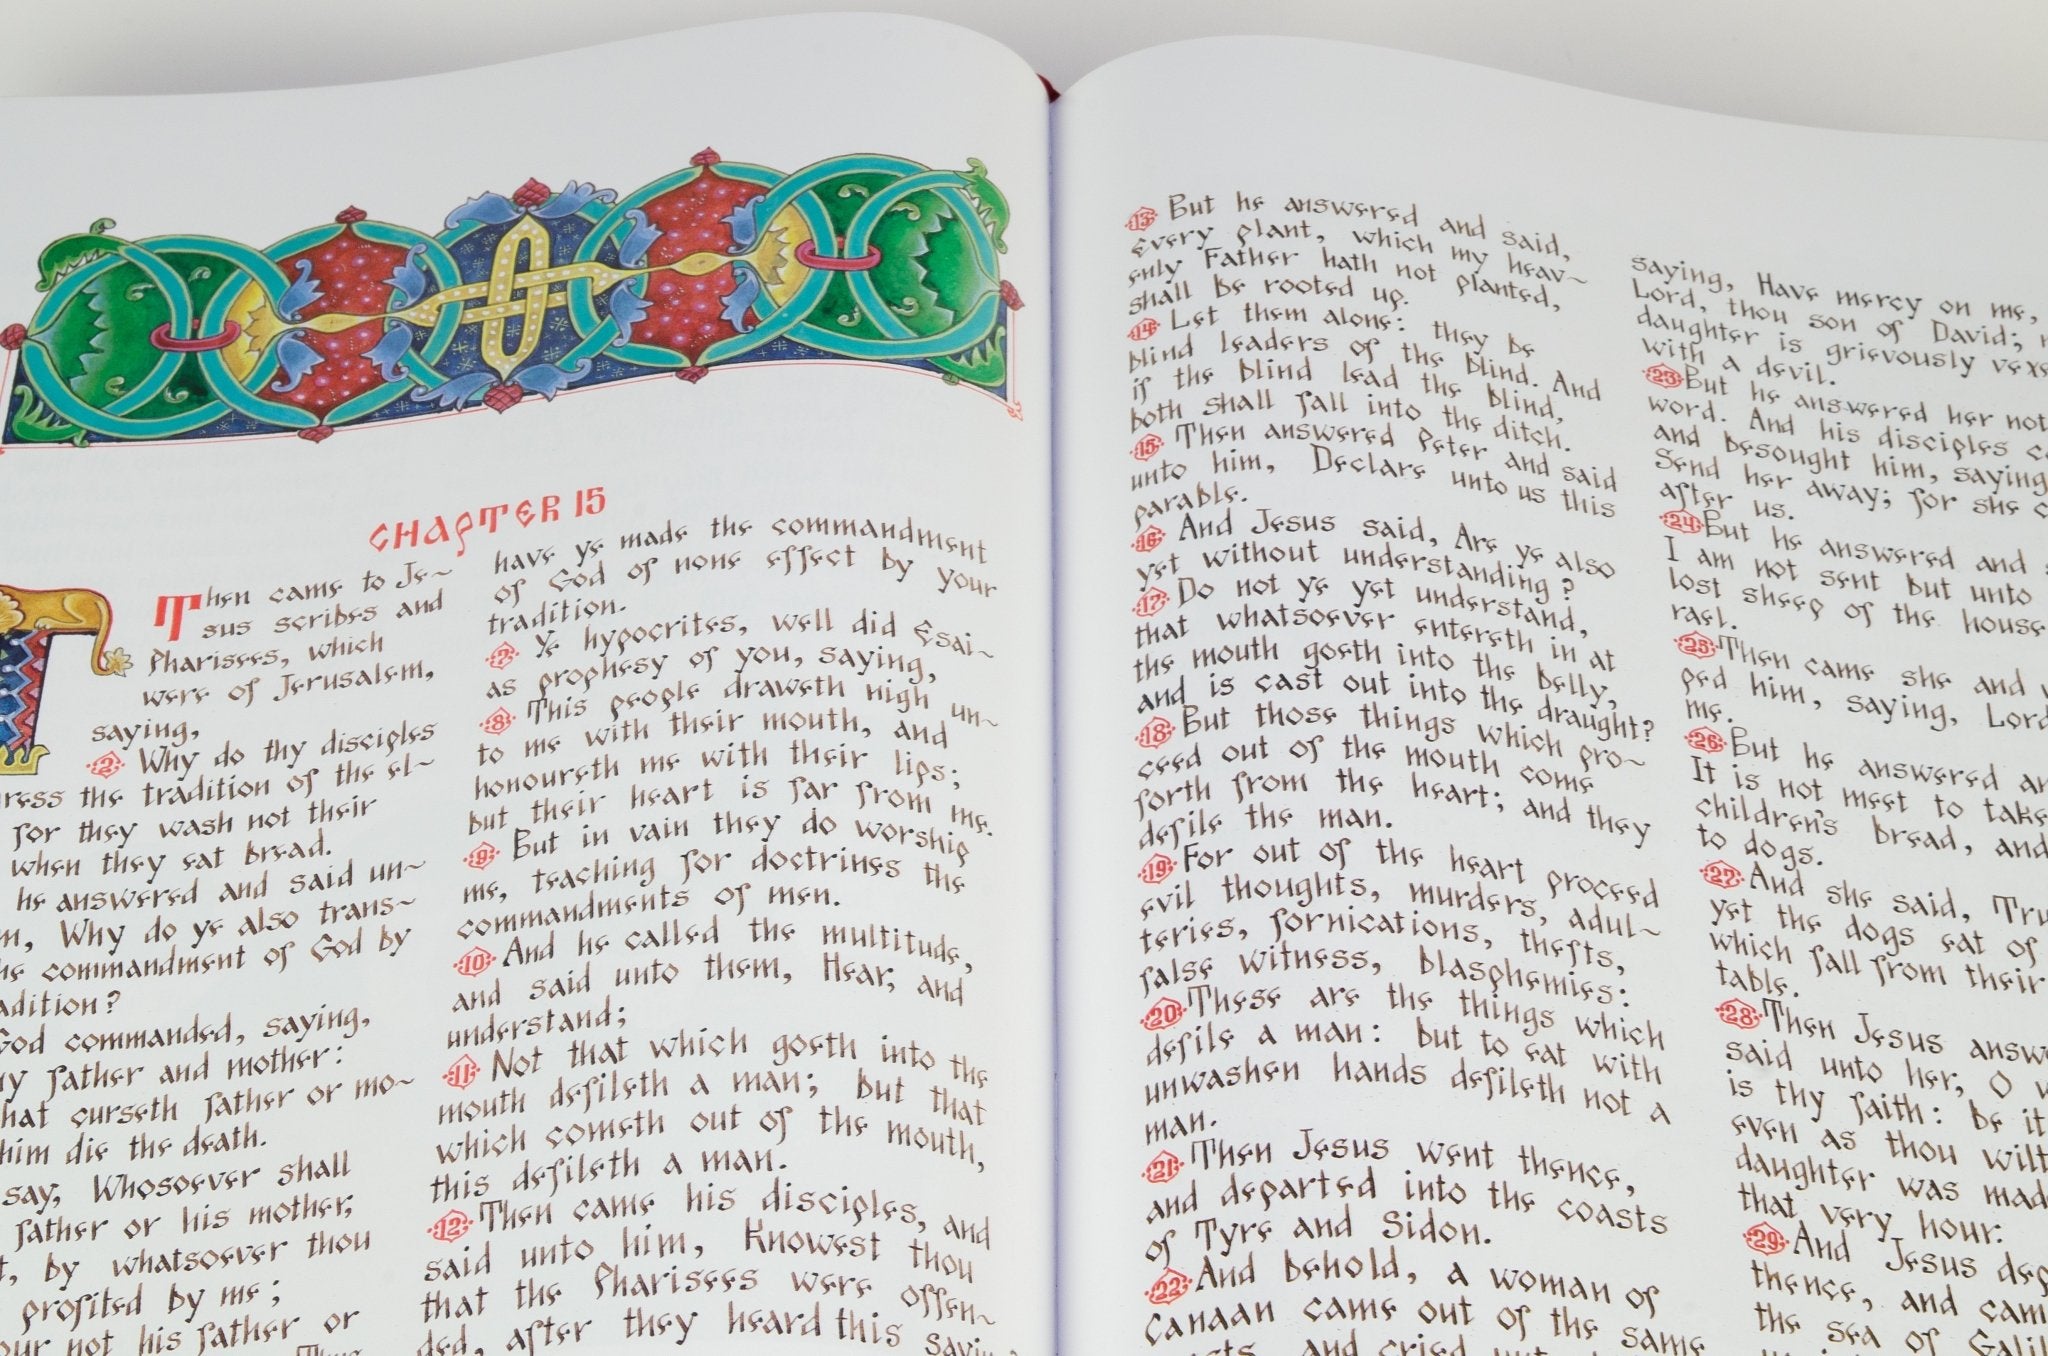 CHAPTER 15
Then came to Je~
sus scribes and
Pharisees, which
were of Jerusalem,
saying,
2 Why do thy disciples
the tradition of the el~
for they wash not their
when they eat bread.
he answered and said un~
Why do ye also trans~
commandment of God by
God commanded, saying,
father and mother:
curseth father or mo~
him die the death.
say, Whosoever shall
father or his mother,
by whatsoever thou
profited by me;
not his father or
have ye made the commandment
of God of none effect by your
tradition.
7 Ye hypocrites, well did Esai~
as prophesy of you, saying,
8 This people draweth nigh un~
to me with their mouth, and
honoureth me with their lips;
but their heart is far from me.
9 But in vain they do worship
me, teaching for doctrines the
commandments of men.
10 And he called the multitude,
and said unto them, Hear, and
understand;
11 Not that which goeth into the
mouth defileth a man; but that
which cometh out of the mouth,
this defileth a man.
12 Then came his disciples, and
said unto him, Knowest thou
that the Pharisees were offen~
ded, after they heard this
13 But he answered and said,
Every plant, which my heav~
enly Father hath not planted,
shall be rooted up.
14 Let them alone: they be
blind leaders of the blind. And
if the blind lead the blind,
both shall fall into the ditch.
15 Then answered Peter and said
unto him, Declare unto us this
parable.
16 And Jesus said, Are ye also
yet without understanding?
17 Do not ye yet understand,
that whatsoever entereth in at
the mouth goeth into the belly,
and is cast out into the draught?
18 But those things which pro~
ceed out of the mouth come
forth from the heart; and they
defile the man.
19 For out of the heart proceed
evil thoughts, murders, adul~
teries, fornications, thefts,
false witness, blasphemies:
20 These are the things which
defile a man: but to eat with
unwashen hands defileth not a
man.
21 Then Jesus went thence,
and departed into the coasts
of Tyre and Sidon.
22 And behold, a woman of
Canaan came out of the same
and cried unto
saying, Have mercy on me,
Lord, thou son of David;
daughter is grievously
with a devil.
23 But he answered her not
word. And his disciples
and besought him, saying
Send her away; for she
after us.
24 But he answered and
I am not sent but unto
lost sheep of the house
rael.
25 Then came she and
ped him, saying, Lord
me.
26 But he answered
It is not meet to take
children's bread, and
to dogs.
27 And she said,
yet the dogs eat of
which fall from their
table.
28 Then Jesus
said unto her, O
is thy faith: be it
even as thou wilt
daughter was made
that very hour.
29 And Jesus
thence, and
the sea of